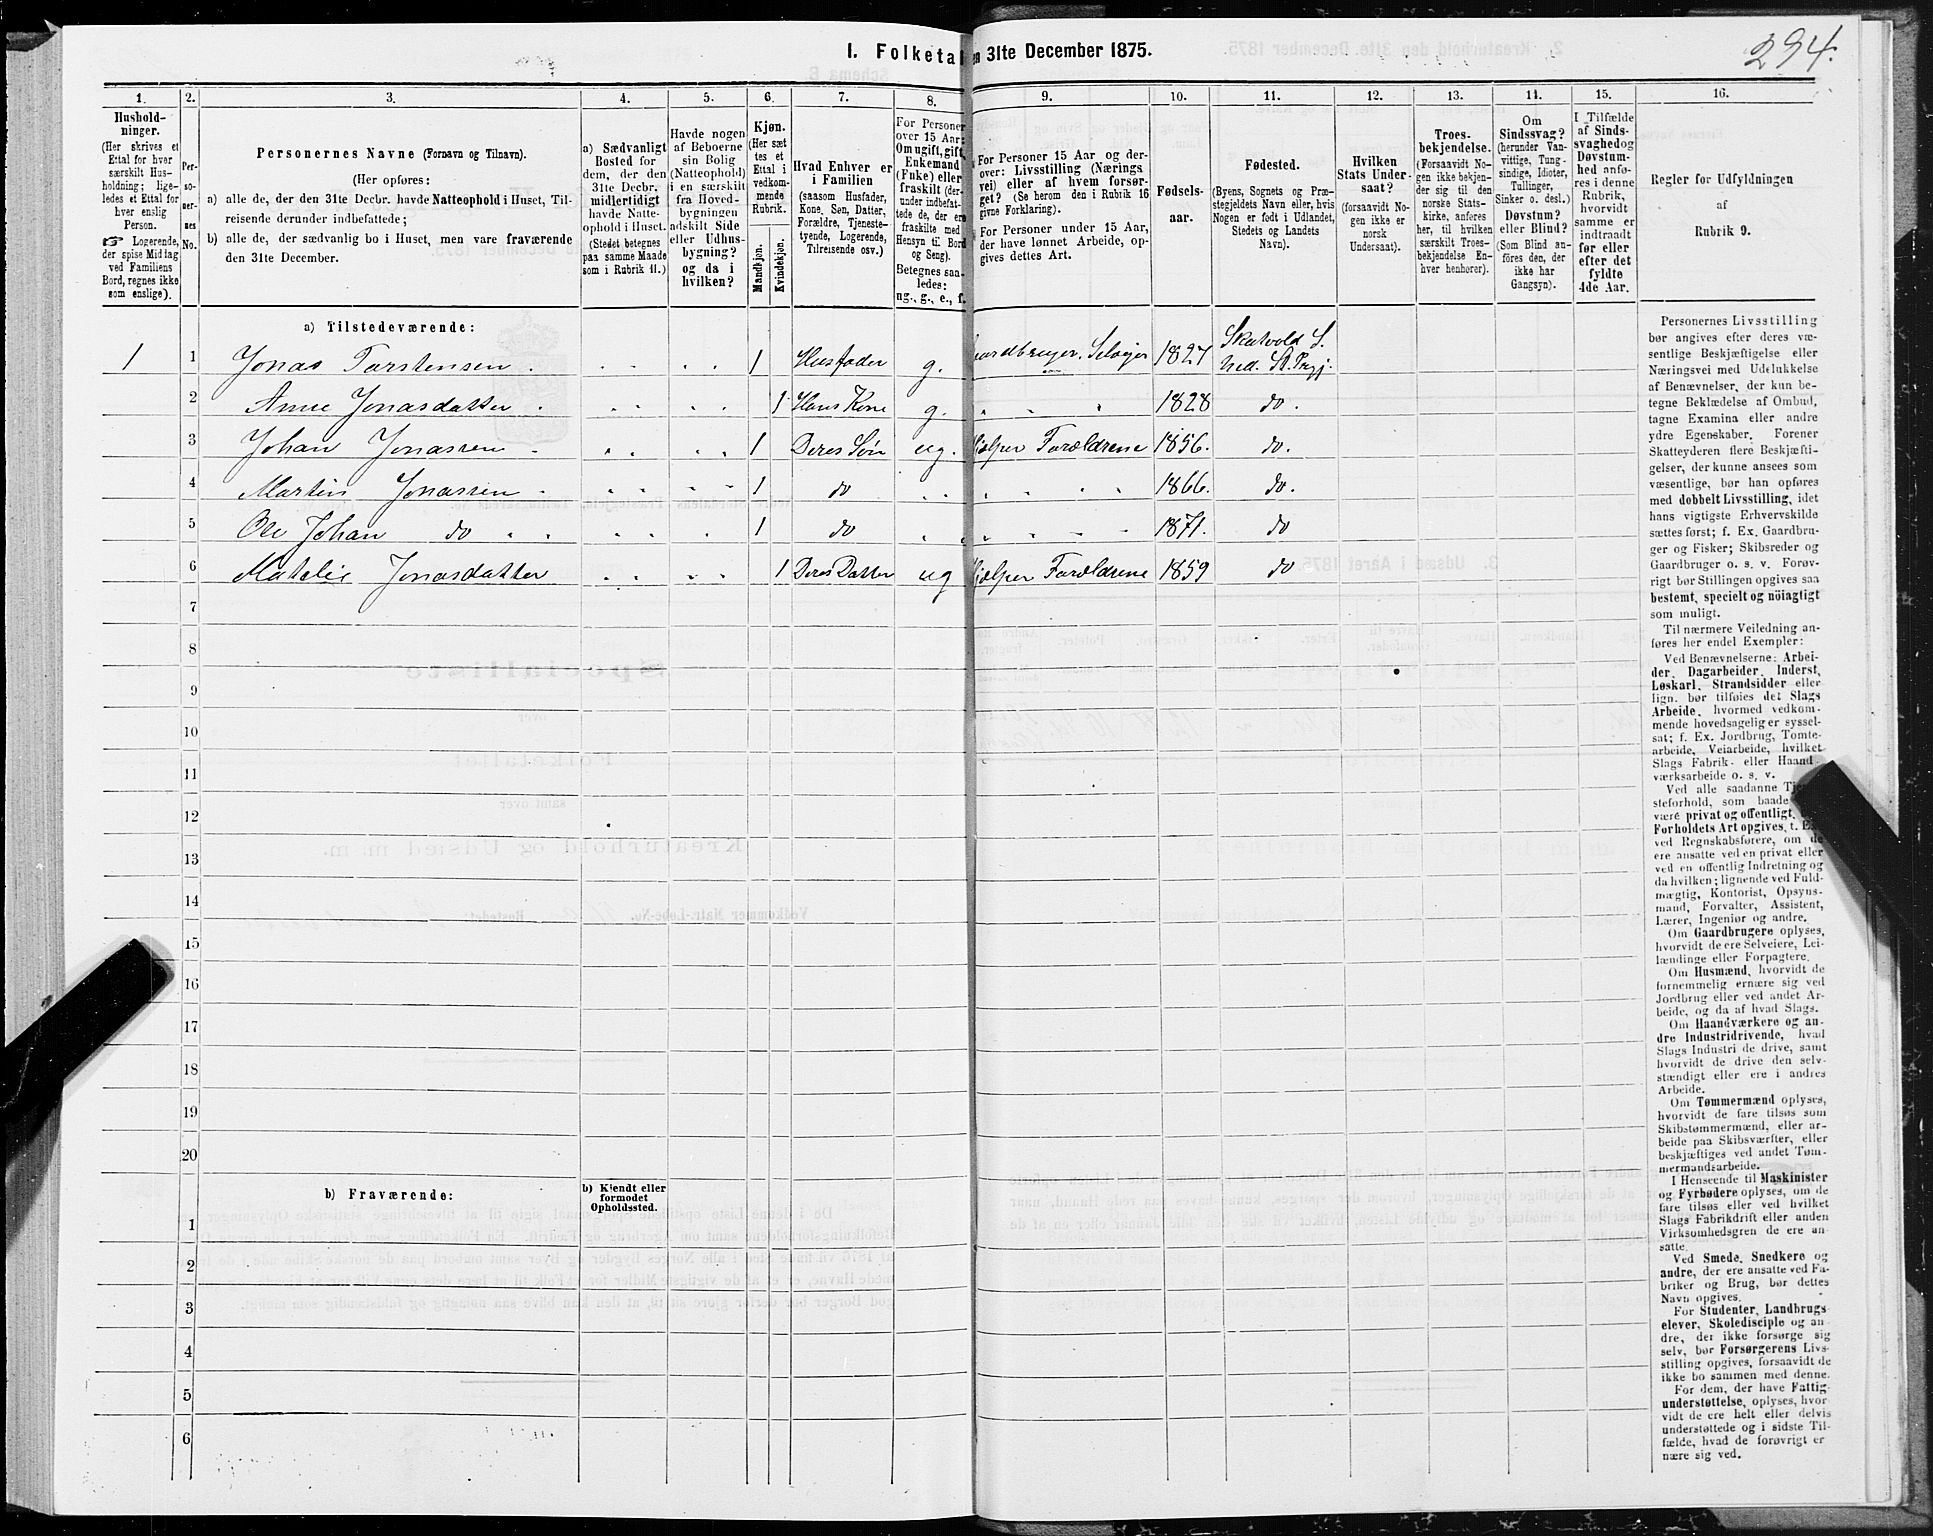 294.
1. Folketal
en 31te December 1875.
1.
2.
3.
4.
5.
6.
7.
8.
9.
10.
11.
12.
13.
14.
15.
16.
Hushold-
ninger.
(Her skrives et
Ettal for hver
særskilt Hus-
holdning; lige-
ledes et Ettal for
hver enslig
Person.
☞ Logerende,
der spise Middag
ved Familiens
Bord, regnes ikke
som enslige).
Per-
so-
ner-
nes
No.
Personernes Navne (Fornavn og Tilnavn).
(Her opføres:
a) alle de, der den 31te Decbr. havde Natteophold i Huset, Til-
reisende derunder indbefattede;
b) alle de, der sædvanlig bo i Huset, men vare fraværende
den 31te December.
a) Sædvanligt
Bosted for
dem, der den
31te Decbr.
midlertidigt
havde Natte-
ophold i Huset.
(Stedet betegnes
paa samme Maade
som i Rubrik 11.)
Havde nogen
af Beboerne
sin Bolig
(Natteophold)
i en særskilt
fra Hoved-
bygningen
adskilt Side
eller Udhus-
bygning?
og da i
hvilken?
Kjøn.
(Her sæt
tes et
Ettal i
vedkom-
mende
Rubrik.
Mandkjøn.
Kvindekjøn.
Hvad Enhver er
i Familien
(saasom Husfader,
Kone, Søn, Datter,
Forældre, Tjeneste-
tyende, Logerende,
Tilreisende osv.)
For Personer
over 15 Aar:
Om ugift, gift,
Enkemand
(Enke) eller
fraskilt (der-
under indbefat-
tede de, der ere
fraskilte med
Hensyn til Bord
og Seng).
Betegnes saa-
ledes:
ug., g., e., f.
For Personer 15 Aar og der-
over: Livsstilling (Nærings
vei) eller af hvem forsør-
get? (Se herom den i Rubrik 16
givne Forklaring).
For Personer under 15 Aar,
der have lønnet Arbeide, op-
gives dettes Art.
Fødsels-
aar.
Fødested.
(Byens, Sognets og Præ-
stegjeldets Navn eller, hvis
Nogen er født i Udlandet,
Stedets og Landets
Navn).
Hvilken
Stats Under-
saat?
(forsaavidt No-
gen ikke er
norsk
Undersaat).
Troes-
bekjendelse.
(Forsaavidt No-
gen ikke bekjen-
der sig til den
norske Stats-
kirke, anføres
her, til hvilken
særskilt Troes-
bekjendelse En-
hver henhorer).
Om
Sindssvag?
(herunder Van-
vittige, Tung-
sindige, Idioter,
Tullinger,
Sinker o. desl.)
Døvstum?
eller Blind?
(Som Blind an-
føres den, der
ikke har
Gangsyn).
I Tilfælde
af Sinds-
svaghed og
Døvstum-
hed anfø-
res i denne
Rubrik,
hvorvidt
samme er
indtraadt
før eller
efter det
fyldte
4de Aar.
Regler for Udfyldningen
af
Rubrik 9.
a) Tilstedeværende:
1 1 Jonas Torstensen 1 Husfader g. Gaardbruger, Selveier 1827 Skatvold S. Ned. St. Prgj.
2 Anne Jonasdatter 1 Hans Kone g. 1828 do.
3 Johan Jonassen 1 Deres Søn ug. Hjælper Forældrene 1856. do.
4 Martin Jonassen 1 do 1866. do.
5 Ole Johan do 1 do 1871. do
6 Matelie Jonasdatter 1 Deres Datter ug Hjælper Forældrene 1859 do
7
8
9
10
11
12
13
14
15
16
17
18
19
20
b) Fraværende:
b) Kjendt eller
formodet
Opholdssted.
1
2
3
4
5
6
Personernes Livsstilling
bør angives efter deres væ-
sentlige Beskjæftigelse eller
Næringsvei med Udelukkelse
af Benævnelser, der kun be-
tegne Beklædelse af Ombud,
tagne Examina eller andre
ydre Egenskaber. Forener
Skatteyderen flere Beskjæfti-
gelser, der kunne ansees som
væsentlige, bør han opføres
med dobbelt Livsstilling, idet
hans vigtigste Erhvervskilde
sættes først; f. Ex. Gaardbru-
ger og Fisker; Skibsreder og
Gaardbruger o. s. v. Forøv-
rigt bør Stillingen opgives saa
bestemt, specielt og nöiagtigt
som muligt.
Til nærmere Veiledning an-
føres her endel Exempler:
Ved Benævnelserne: Arbei-
der, Dagarbeider, Inderst,
Løskarl, Strandsidder eller
lign. bør tilføies det Slags
Arbeide, hvormed vedkom-
mende hovedsagelig er syssel-
sat; f. Ex. Jordbrug, Tomte-
arbeide, Veiarbeide, hvilket
Slags Fabrik- eller Haand-
værksarbeide o. s. v.
Ved alle saadanne
steforhold, som baade
være privat og offentligt,
Forholdets Art opgives, t. Ex
ved Regnskabsførere, om de
ere ansatte ved en privat eller
ved en offentlig Indretning og
da hvilken; lignende ved Fuld-
mægtig, Kontorist, Opsyns-
mand, Forvalter, Assistent,
Lærer, Ingeniør og andre.
Om Gaardbrugere oplyses,
hvorvidt de ere Selveiere, Lei-
lændinge eller Forpagtere.
Om Husmænd, hvorvidt de
fornemmelig ernære sig ved
Jordbrug eller ved andet Ar-
beide, og da af hvad Slags.
Om Haandværkere og an-
dre Industridrivende, hvad
Slags Industri de drive, samt
hvorvidt de drive den selv-
stændigt eller ere i andres
Arbeide.
Om Tømmermænd oplyses,
hvorvidt de fare tilsøs som
Skibstømmermænd, eller ar-
beide paa Skibsværfter, eller
beskjæftiges ved andet Tøm-
mermandsarbeide.
I Henseende til Maskinister
og Fyrbødere oplyses, om de
fare tilsøs eller ved hvilket
Slags Fabrikdrift eller anden
Virksomhedsgren de ere an-
satte.
Ved Smede, Snedkere og
andre, der ere ansatte ved Fa-
briker og Brug, bør dettes
Navn opgives.
For Studenter, Landbrugs-
elever, Skoledisciple og an
dre, der ikke forsørge sig
selv, bør Forsørgerens Livs-
stilling opgives, forsaavidt de
ikke bo sammen med denne.
For dem, der have Fattig-
understøttelse, oplyses, hvor-
vidt de ere helt eller delvis
understøttede og i sidste Til-
fælde, hvad de forøvrigt er
nære sig ved.